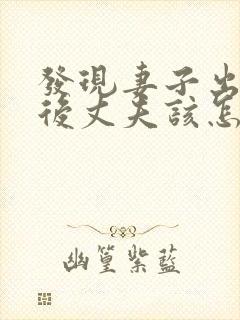 發現妻子出
後丈夫該怎
幽篁紫藍